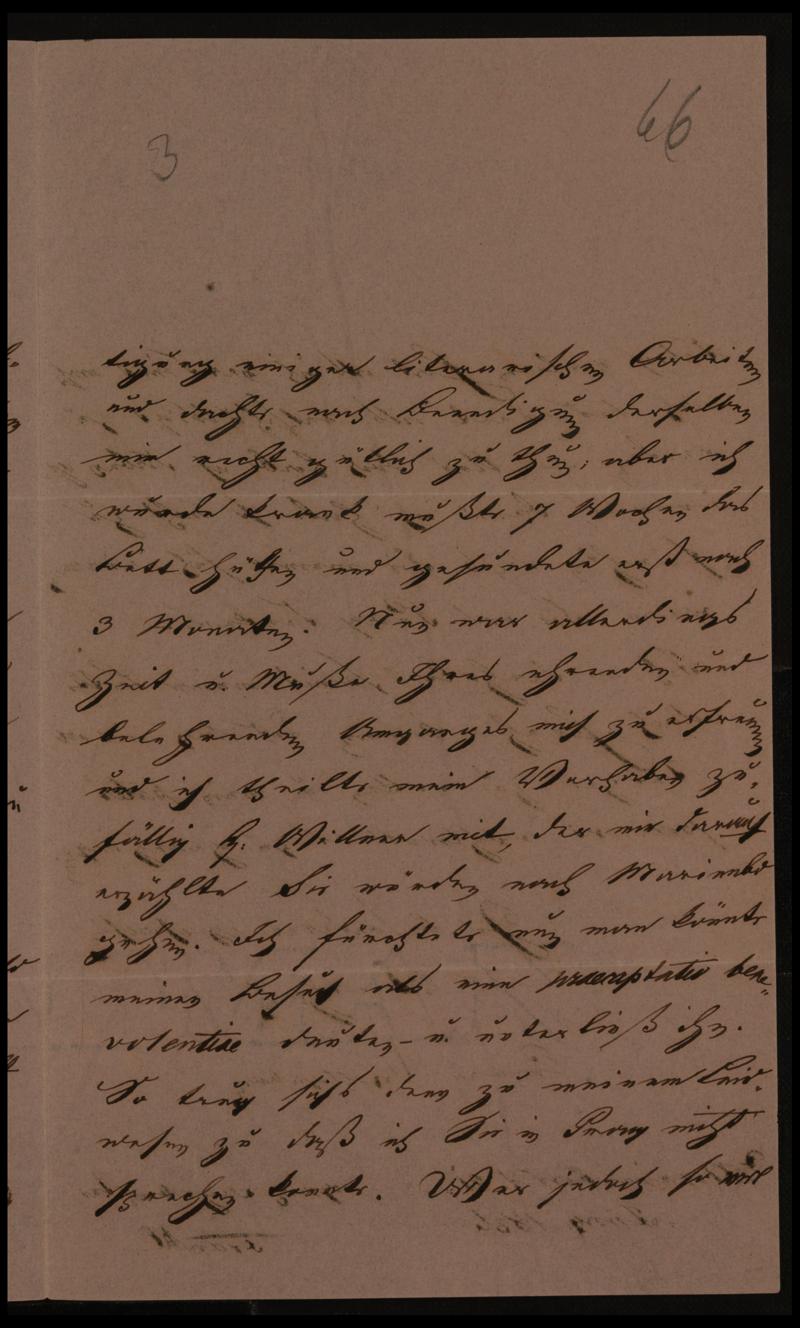 3
66
tigung einiger literarischen Arbeiten
und dachte nach Beendigung derselben
mir recht gütlich zu thun; aber ich
wurde krank mußte 7 Wochen das
Bett hüthen und gesundete erst nach
3 Monaten. Nun war allerdings
Zeit u. Muße Ihres ehrenden und
belehrenden Umganges mich zu erfreuen
und ich theilte mein Vorhaben zu-
fällig H: Willner mit, der mir darauf
erzählte Sie würden nach Marienbd
gehen. Ich fürchtete nun man könnte
meinen Besuch als eine praecaptatio bene-
volentiae deuten – u. unterließ ihn.
So trug sichs denn zu meinem Leid-
wesen zu daß ich Sie in Prag nicht
sprechen konnte. Wer jedoch so viel